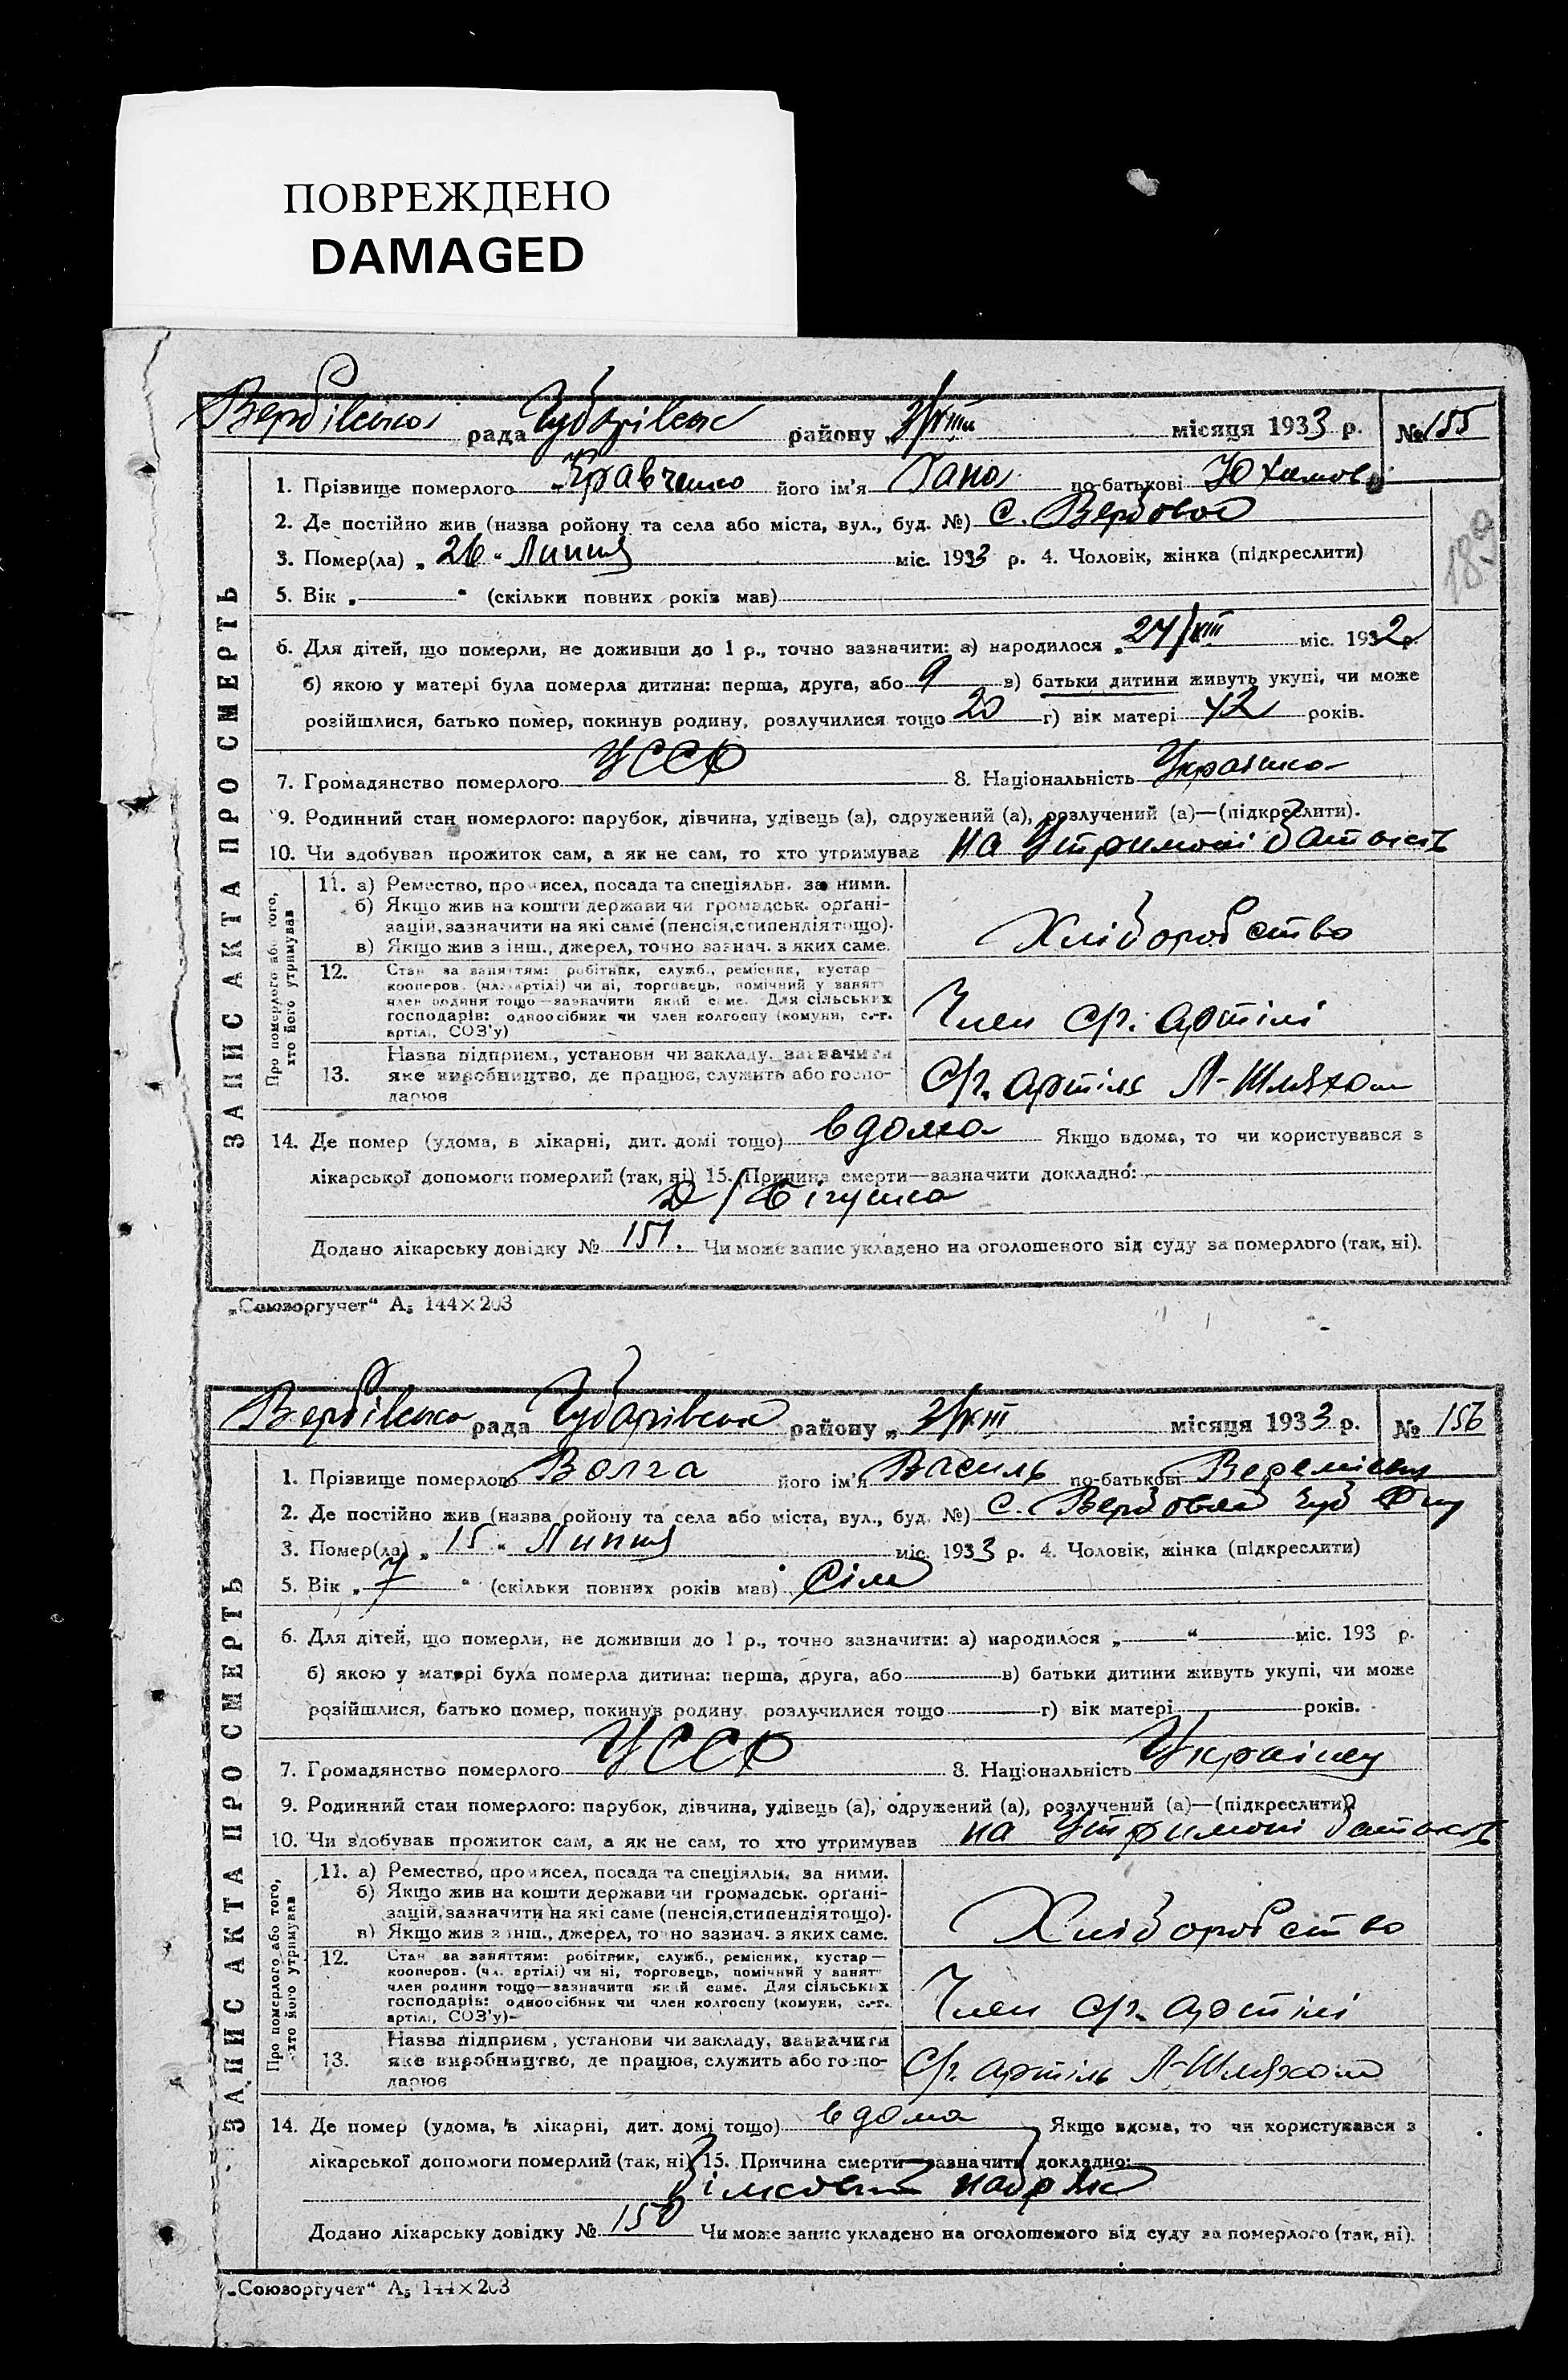 ПОВРЕЖДЕНО
DAMAGED
Вербівська рада Чубарівськ району „3/VIII місяця 1933 р. № 155
189
ЗАПИС АКТА ПРО СМЕРТЬ
1. Прізвище померлого Кравченко його ім'я Гана по-батькові Юхимовн
2. Де постійно жив (назва ройону та села або міста, вул., буд. №) с. Вербовой
3. Помер(ла) „ 26 “ Липня міс. 1933 р. 4. Чоловік, жінка (підкреслити)
5. Вік „ “ (скільки повних років мав)
6. Для дітей, що померли, не доживши до 1 р., точно зазначити: а) народилося „ 24/VIII міс. 1932 р.
б) якою у матері була померла дитина: перша, друга, або 9 в) батьки дитини живуть укупі, чи може
розійшлися, батько помер, покинув родину, розлучилися тощо 20 г) вік матері 42 років.
7. Громадянство померлого УССР 8. Національність Українка
9. Родинний стан померлого: парубок, дівчина, удівець (а), одружений (а), розлучений (а)—(підкреслити).
10. Чи здобував прожиток сам, а як не сам, то хто утримував на Утримані батьків
Про померлого або того,
хто його утримував
11. а) Ремество, промисел, посада та спеціяльн. за ними.
б) Якщо жив на кошти держави чи громадськ. орґані-
зацій, зазначити на які саме (пенсія, стипендія тощо).
в) Якщо жив з інш., джерел, точно зазнач. з яких саме.
Хліборобство
12. Стан за заняттям: робітник, служб., ремісник, кустар—
кооперов. (чл. артілі) чи ні, торговець, помічний у занят‑
член родини тощо—зазначити який саме. Для сільських
господарів: одноосібник чи член колгоспу (комуни, с.-г.
артілі, СОЗ'у)
Член с/г. артілі
13. Назва підприєм., установи чи закладу, зазначити
яке виробництво, де працює, служить або госпо-
дарює
С/г. артіль Л-Шляхом
14. Де помер (удома, в лікарні, дит. домі тощо) вдома Якщо вдома, то чи користувався з
лікарської допомоги померлий (так, ні) 15. Причина смерти—зазначити докладно:
Д/бігунка
Додано лікарську довідку № 151. Чи може запис укладено на оголошеного від суду за померлого (так, ні).
„Союзоргучет“ А5 144×203
Вербівська рада Чубарівськ району „ 3/VIII місяця 1933 р. № 156
ЗАПИС АКТА ПРО СМЕРТЬ
1. Прізвище померлого Волга його ім'я Василь по-батькові
2. Де постійно жив (назва ройону та села або міста, вул., буд. №) с. Вербовой Чуб
3. Помер(ла) „ 15 “ Липня міс. 1933 р. 4. Чоловік, жінка (підкреслити)
5. Вік „ 7 “ (скільки повних років мав) Сім
6. Для дітей, що померли, не доживши до 1 р., точно зазначити: а) народилося „ “ міс. 193 р.
б) якою у матері була померла дитина: перша, друга, або в) батьки дитини живуть укупі, чи може
розійшлися, батько помер, покинув родину, розлучилися тощо г) вік матері років.
7. Громадянство померлого УССР 8. Національність Українец
9. Родинний стан померлого: парубок, дівчина, удівець (а), одружений (а), розлучений (а)—(підкреслити)
10. Чи здобував прожиток сам, а як не сам, то хто утримував на Утримані батьків
Про померлого або того,
хто його утримував
11. а) Ремество, промисел, посада та спеціяльн. за ними.
б) Якщо жив на кошти держави чи громадськ. орґані-
зацій, зазначити на які саме (пенсія, стипендія тощо).
в) Якщо жив з інш., джерел, точно зазнач. з яких саме.
Хліборобство
12. Стан за заняттям: робітник, служб., ремісник, кустар—
кооперов. (чл. артілі) чи ні, торговець, помічний у занят‑
член родини тощо—зазначити який саме. Для сільських
господарів: одноосібник чи член колгоспу (комуни, с.-г.
артілі, СОЗ'у)-
Член с/г. артілі
13. Назва підприєм, установи чи закладу, зазначити
яке виробництво, де працює, служить або госпо-
дарює
С/г. артіль Л-Шляхом
14. Де помер (удома, в лікарні, дит. домі тощо) вдома Якщо вдома, то чи користувався з
лікарської допомоги померлий (так, ні) 15. Причина смерти—зазначити докладно:
Білковий набряк
Додано лікарську довідку № 150 Чи може запис укладено на оголошеного від суду за померлого (так, ні).
„Союзоргучет“ А5 144×203